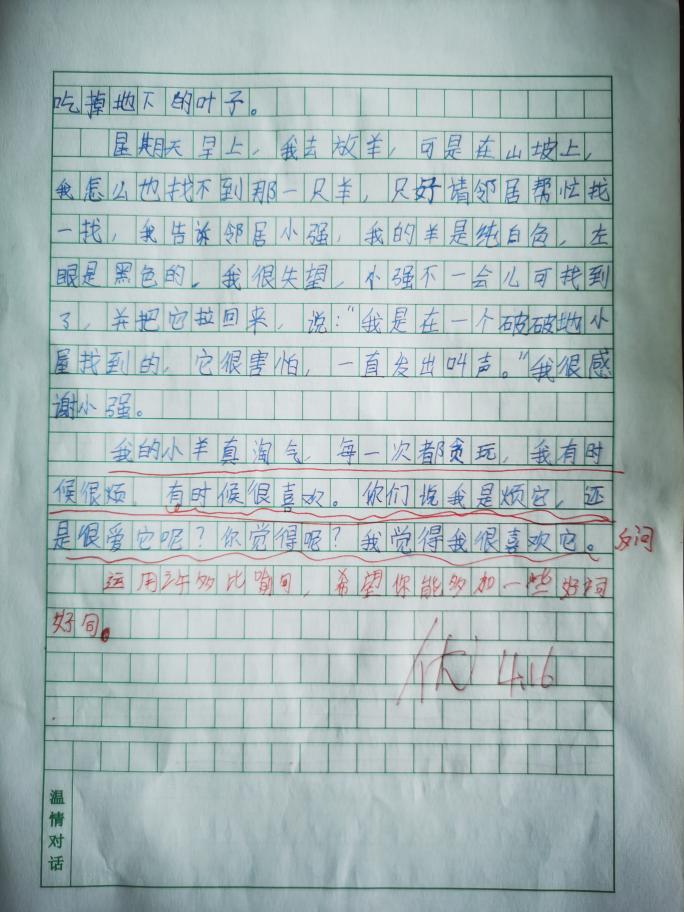 吃掉地下的叶子。
星期天早上，我去放羊，可是在山坡上，
我怎么也找不到那一只羊，只好请邻居帮忙找
一找，我告诉邻居小强，我的羊是纯白色，左
眼是黑色的，我很失望，小强不一会儿可找到
了，并把它拉回来，说：“我是在一个破破地小
屋找到的，它很害怕，一直发出叫声。”我很感
谢小强。
我的小羊真淘气，每一次都贪玩，我有时
候很烦，有时候很喜欢。你们说我是烦它，还
是很爱它呢？你觉得呢？我觉得我很喜欢它。反问
运用许多比喻句，希望你能多加一些好词
好句。
优 4.16
温情对话